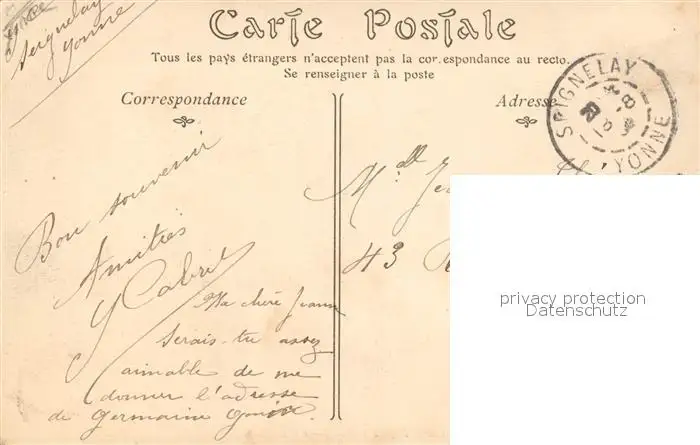 Seignelay
Yonne
Carte Postale
Tous les pays étrangers n'acceptent pas la cor.espondance au recto.
Se renseigner à la poste
Correspondance
Adresse
SEIGNELAY
YONNE
Bon souvenir
Amitiés
Y Cabril
Ma chère Jeanne
Serais-tu assez
aimable de me
donner l'adresse
de Germaine
Mlle
43
privacy protection
Datenschutz